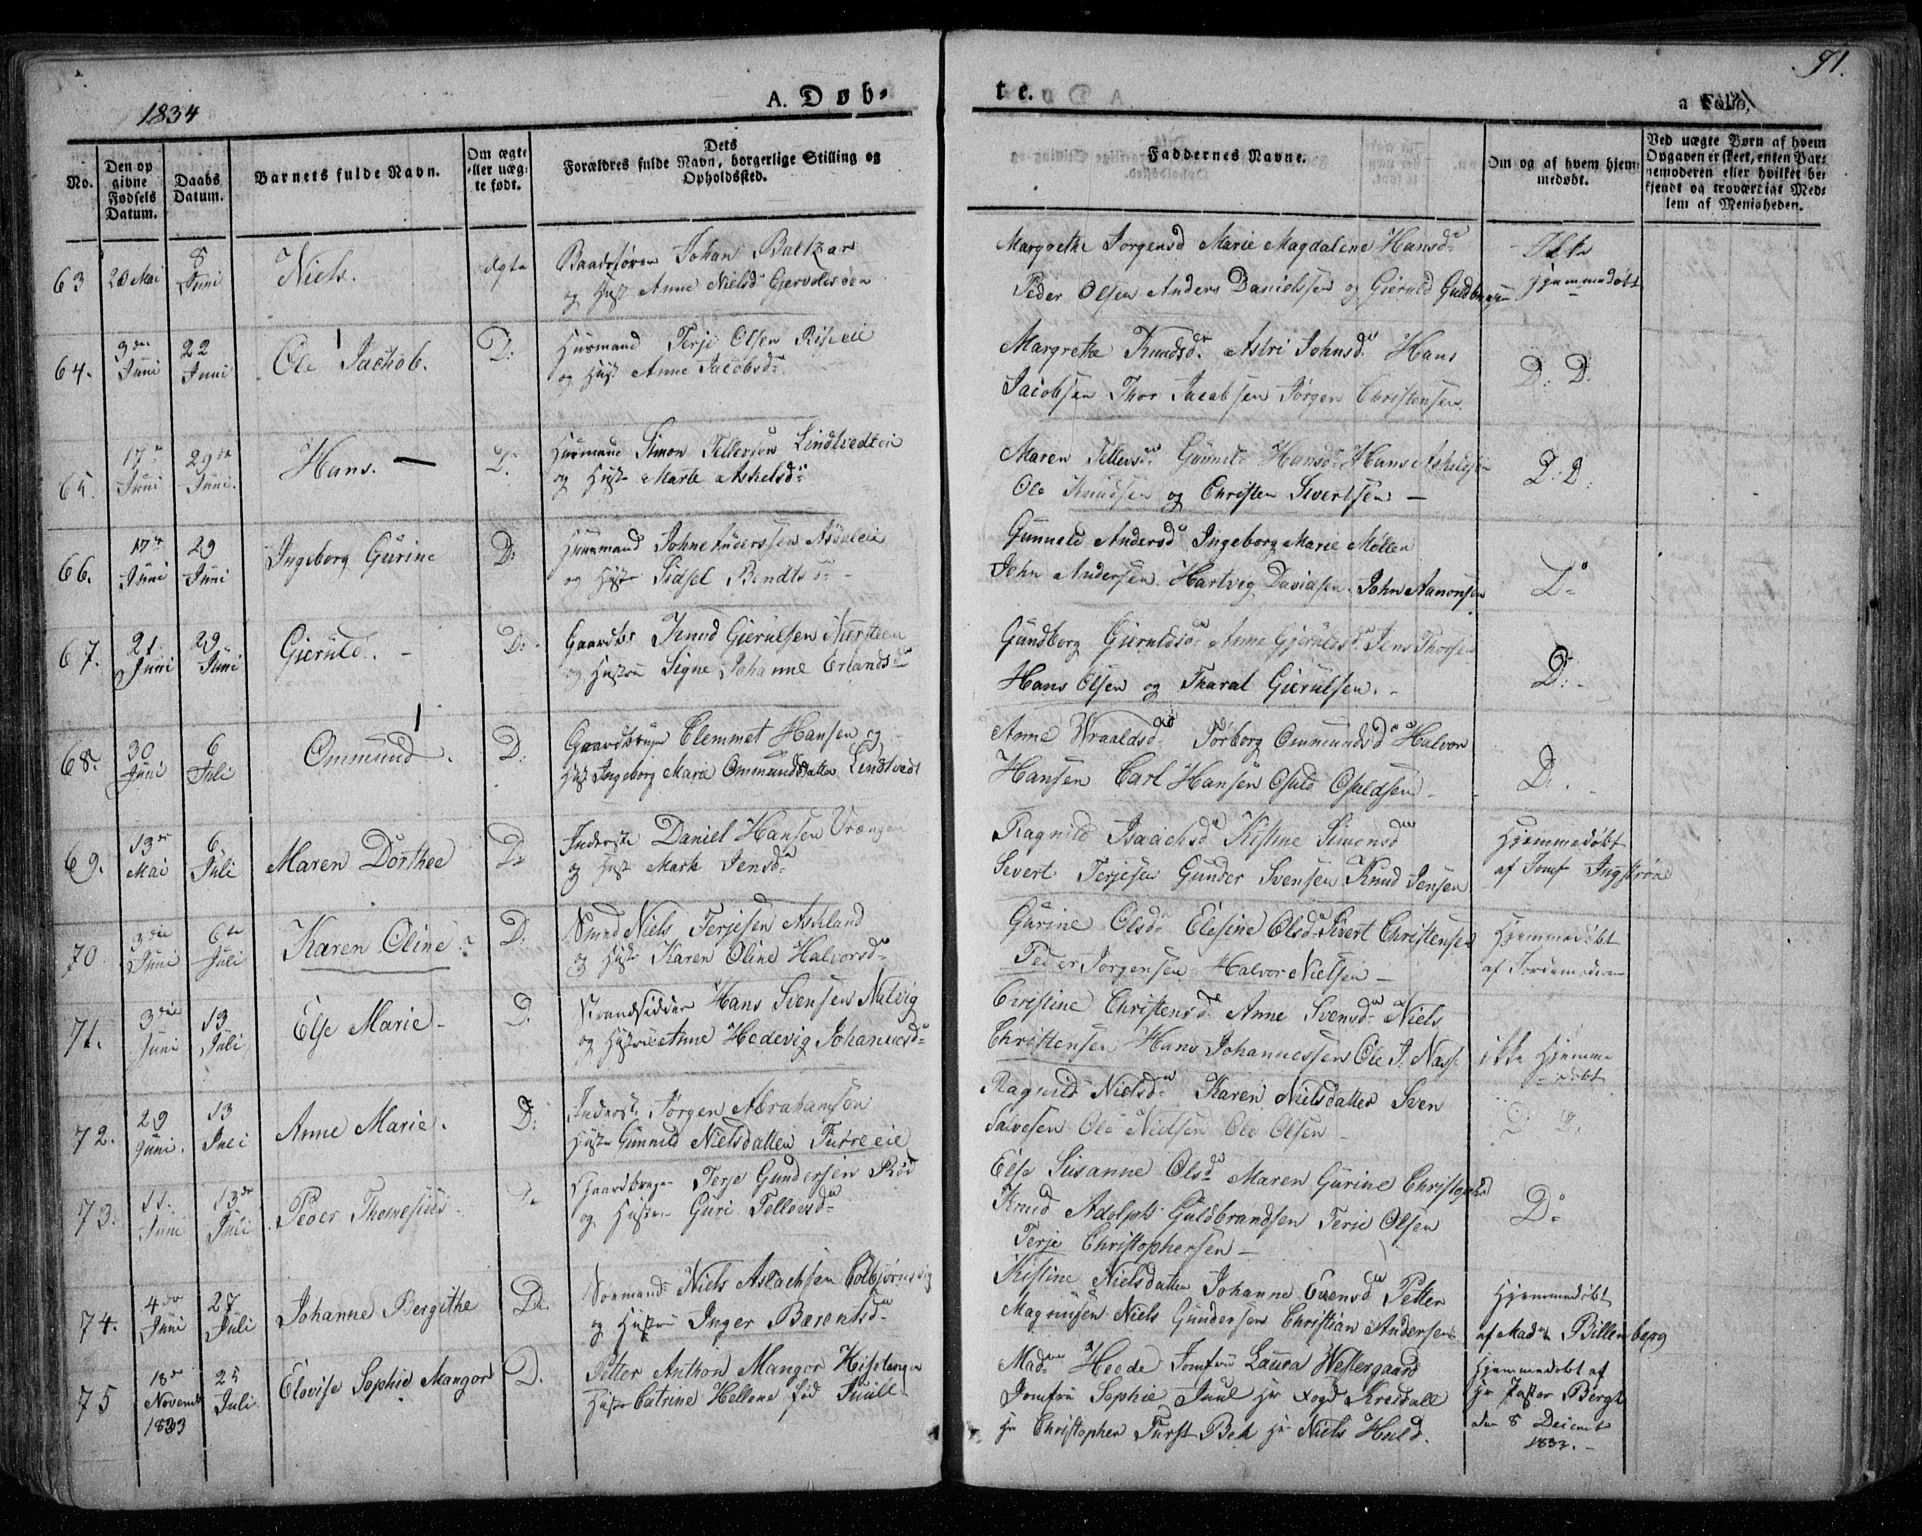 1834
A. Døb-
te.
91.
a Folio,
No.
Den op
givne
Fødsels
Datum.
Daabs
Datum.
Barnets fulde Navn.
Om ægte
eller uæg-
te født.
Dets
Forældres fulde Navn, borgerlige Stilling og
Opholdssted.
Faddernes Navne.
Om og af hvem hjem-
medøbt.
Ved uægte Børn af hvem
Opgaven er skeet, enten Bar-
nemoderen eller hvilket be-
kjendt og troværdigt Med-
lem af Menigheden.
63 20 Mai 8 Juni Niels. ægte
Johan Baltzar
og Hust Anne Nielsd
Margrethe Jørgensd Marie Magdalene Hansd
Peder Olsen Anders Danielssen og Gieruld
Ikke
Hjemmedøbt
64. 3die Juni 22 Juni Ole Jachob. D:
Huusmand Terje Olsen
og Hust Anne Jacobsd
Margrethe Knudsd. Astri Johnsd Hans
Jacobsen Thor Jacobsen Jørgen Christensen.
D: D:
65. 17 Juni 29 Juni. Hans. — D.
Huusmand Simon Tellefsen
og Hust Marte Askelsd
Maren Tellevsd. Gunnild Hansd Hans
Ole Knudsen og Christen Sivertsen —
D. D.
66. 17 Juni 29 Juni Ingeborg Gurine D:
Huusmand John Anderssen
og Hust Sidsel Bendtsd
Gunnild Andersd Ingeborg Marie Møller
John Andersen. Hartvig Davidsen. John Aanonsen
D°
67. 21 Juni 29 Juni Gieruld. – D:
Gaardbr Knud Gierulsen
og Hustru Signe Johanne Erlandsd
Gundborg Gieruldsd Anne Gjeruldsd Jens Thorsen
Hans Olsen og Tharal Gierulsen. –
D: –
68. 30 Juni 6 Juli Ommund. D.
Gaardbruger Clemmet Hansen og
Hust Ingeborg Marie Ommundsdatter Lindtvedt
Anne Wraaldsd. Torborg Ommundsd Halvor
Hansen Carl Hansen Osuld Osuldsen –
D. –
69. 13de Mai 6 Juli Maren Dorthee D:
Inderste Daniel Hansen Vrængen
og Hust Marte Jensd
Ragnild Isaachsd Kistine Simonsd
Severt Terjesen Gunder Svensen Knud Jensen
Hjemmedøbt
af Jomf
70 3die Juni 6te Juli Karen Oline D.
Smed Niels Terjesen Askland
og Hust Karen Oline Halvorsd
Gurine Olsd. Elesine Olsd Sivert Christensen
Peder Jørgensen Halvor Nielsen —
Hjemmedøbt
af Jordemoderen
71. 3die Juni 13 Juli Else Marie – D.
Strandsidder Hans Svensen Natvig
og Hustrue Anne Hedevig Johannesd
Christine Christensd. Anne Svensd. Niels
Christensen Hans Johannessen Ole J. Næss.
ikke Hjemme
døbt
72. 29 Juni. 13 Juli Anne Marie. D:
Inderst Jørgen Abrahamson
Hustr Gunnild Nielsdatter
Ragnild Nielsd Karen Nielsdatter Sven
Salvesen Ole Nielsen Ole Olsen –
D D.
73. 11. Juni 13de Juli Peder Thomesius.
Gaardbruger Terje Gundersen Röd
og Hustru Guri Tellevsd
Else Susanne Olsd Maren Gurine Christophd
Knud Adolph Guldbrandsen Terje Olsen
Terje Christophersen –
D°
74. 4de Juni 27 Juli Johanne Bergithe D.
Sømand Niels Aslachsen Colbjørnsvig
og Hustru Inger Barentsd
Kistine Nielsdatter Johanne Evensd Petter
Magnusen Niels Gundersen Christian Andersen
Hjemmedøbt
af Mad. Billenberg
75 18de Novemb 1833 25 Juli Elovise Sophie Mangor D.
Petter Anthon Mangor
Hustr Catrine Hellene fød Juell
Mad. Heede Jomfru Laura Westergaard
Jomfru Sophie Juul Hr Fogd
Hr Christopher Fürst Beh Hr Niels Huld.
Hjemmedøbt af
Hr Pastor Bergh
den 8 Decemb
1833. –